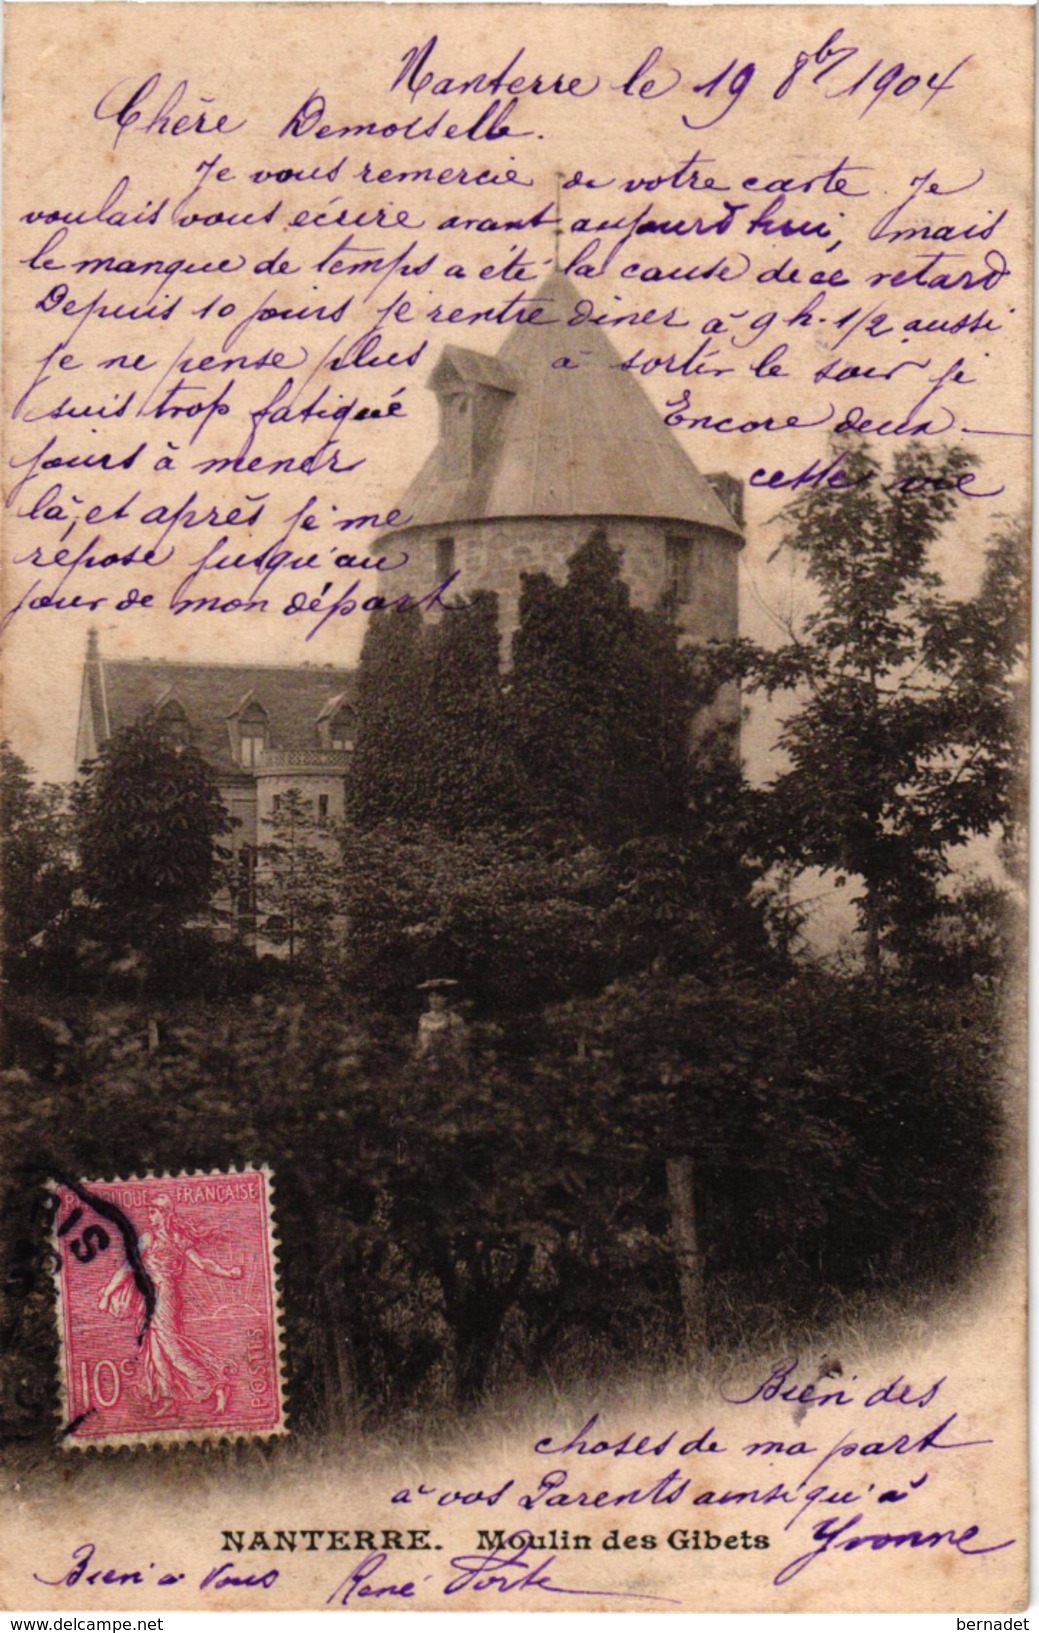 Nanterre le 19 8bre 1904
Chère Demoiselle.
Je vous remercie de votre carte. Je
voulais vous écrire avant aujourd'hui, mais
le manque de temps a été la cause de ce retard
Depuis 10 jours je rentre diner à 9h-1/2 aussi
je ne pense plus à sortir le soir je
suis trop fatigué Encore deux
jours à mener cette vie
là, et après je me
repose jusqu'au
jour de mon départ
RÉPUBLIQUE FRANÇAISE
10c
POSTES
Bien des
choses de ma part
à vos Parents ainsi qu'à
Yvonne
NANTERRE. Moulin des Gibets
Bien à vous René Porte
delcampe.net
bernadet